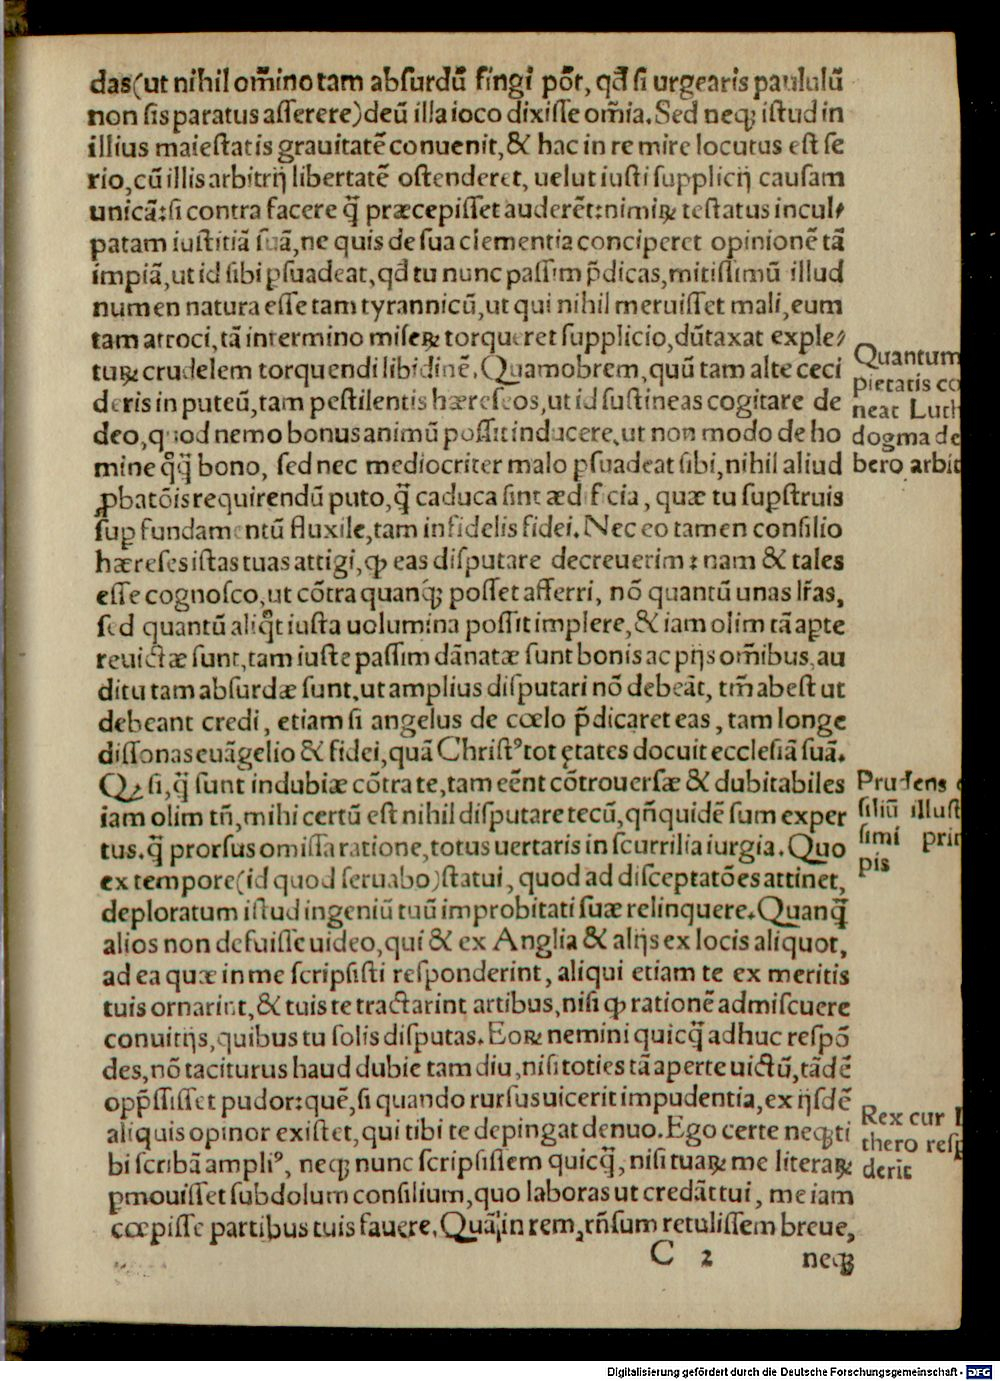 das(ut nihil om̃ino tam absurdũ fingi põt, qđ si urgearis paululũ
non sis paratus asserere)deũ illa ioco dixisse om̃ia. Sed neq; istud in
illius maiestatis grauitatẽ conuenit, & hac in re mire locutus est se
rio, cũ illis arbitrij libertatẽ ostenderet, uelut iusti supplicij causam
unicã: si contra facere q̃ præcepisset auderẽt: nimiꝝ testatus incul⸗
patam iustitiã suã, ne quis de sua clementia conciperet opinionẽ tã
impiã, ut id sibi ꝑsuadeat, qđ tu nunc passim p̃dicas, mitissimũ illud
numen natura esse tam tyrannicũ, ut qui nihil meruisset mali, eum
tam atroci, tã intermino miseꝝ torqueret supplicio, dũtaxat exple⸗
tuꝝ crudelem torquendi libidinẽ. Quamobrem, quũ tam alte ceci
deris in puteũ, tam pestilentis hæreseos, ut id sustineas cogitare de
deo, quod nemo bonus animũ possit inducere, ut non modo de ho
mine q̃q̃ bono, sed nec mediocriter malo ꝑsuadeat sibi, nihil aliud
ꝓbatõis requirendũ puto, q̃ caduca sint ædificia, quæ tu supstruis
suꝑ fundamentũ fluxile, tam infidelis fidei. Nec eo tamen consilio
hæreses istas tuas attigi, ꝙ eas disputare decreuerim: nam & tales
esse cognosco, ut cõtra quanq; posset afferri, nõ quantũ unas lr̃as,
sed quantũ aliq̃t iusta uolumina possit implere, & iam olim tã apte
reuictæ sunt, tam iuste passim dãnatæ sunt bonis ac pijs om̃ibus, au
ditu tam absurdæ sunt, ut amplius disputari nõ debeãt, tm̃ abest ut
debeant credi, etiam si angelus de cœlo p̃dicaret eas, tam longe
dissonas euãgelio & fidei, quã Christꝰ tot ętates docuit ecclesiã suã.
Qꝫ si, q̃ sunt indubiæ cõtra te, tam eẽnt cõtrouersæ & dubitabiles
iam olim tñ, mihi certũ est nihil disputare tecũ, qñquidẽ sum exper
tus. q̃ prorsus omissa ratione, totus uertaris in scurrilia iurgia. Quo
ex tempore(id quod seruabo)statui, quod ad disceptatões attinet,
deploratum istud ingeniũ tuũ improbitati suæ relinquere. Quanq̃
alios non defuisse uideo, qui & ex Anglia & alijs ex locis aliquot,
ad ea quæ in me scripsisti responderint, aliqui etiam te ex meritis
tuis ornarint, & tuis te tractarint artibus, nisi ꝙ rationẽ admiscuere
conuitijs, quibus tu solis disputas. Eoꝝ nemini quicq̃ adhuc respõ
des, nõ taciturus haud dubie tam diu, nisi toties tã aperte uictũ, tãdẽ
opp̃ssisset pudor: quẽ, si quando rursus uicerit impudentia, ex ijsdẽ
aliquis opinor existet, qui tibi te depingat denuo. Ego certe neq; ti
bi scribã ampliꝰ, neq; nunc scripsissem quicq̃, nisi tuaꝝ me literaꝝ
ꝑmouisset subdolum consilium, quo laboras ut credãt tui, me iam
cœpisse partibus tuis fauere. Quã in rem, rñsum retulissem breue,
C 2 neq;
Quantum
pietatis co
neat Luth
dogma de
bero arbit
Prudens
siliũ illust
simi prin
pis
Rex cur L
thero resp
derit
Digitalisierung gefördert durch die Deutsche Forschungsgemeinschaft - DFG